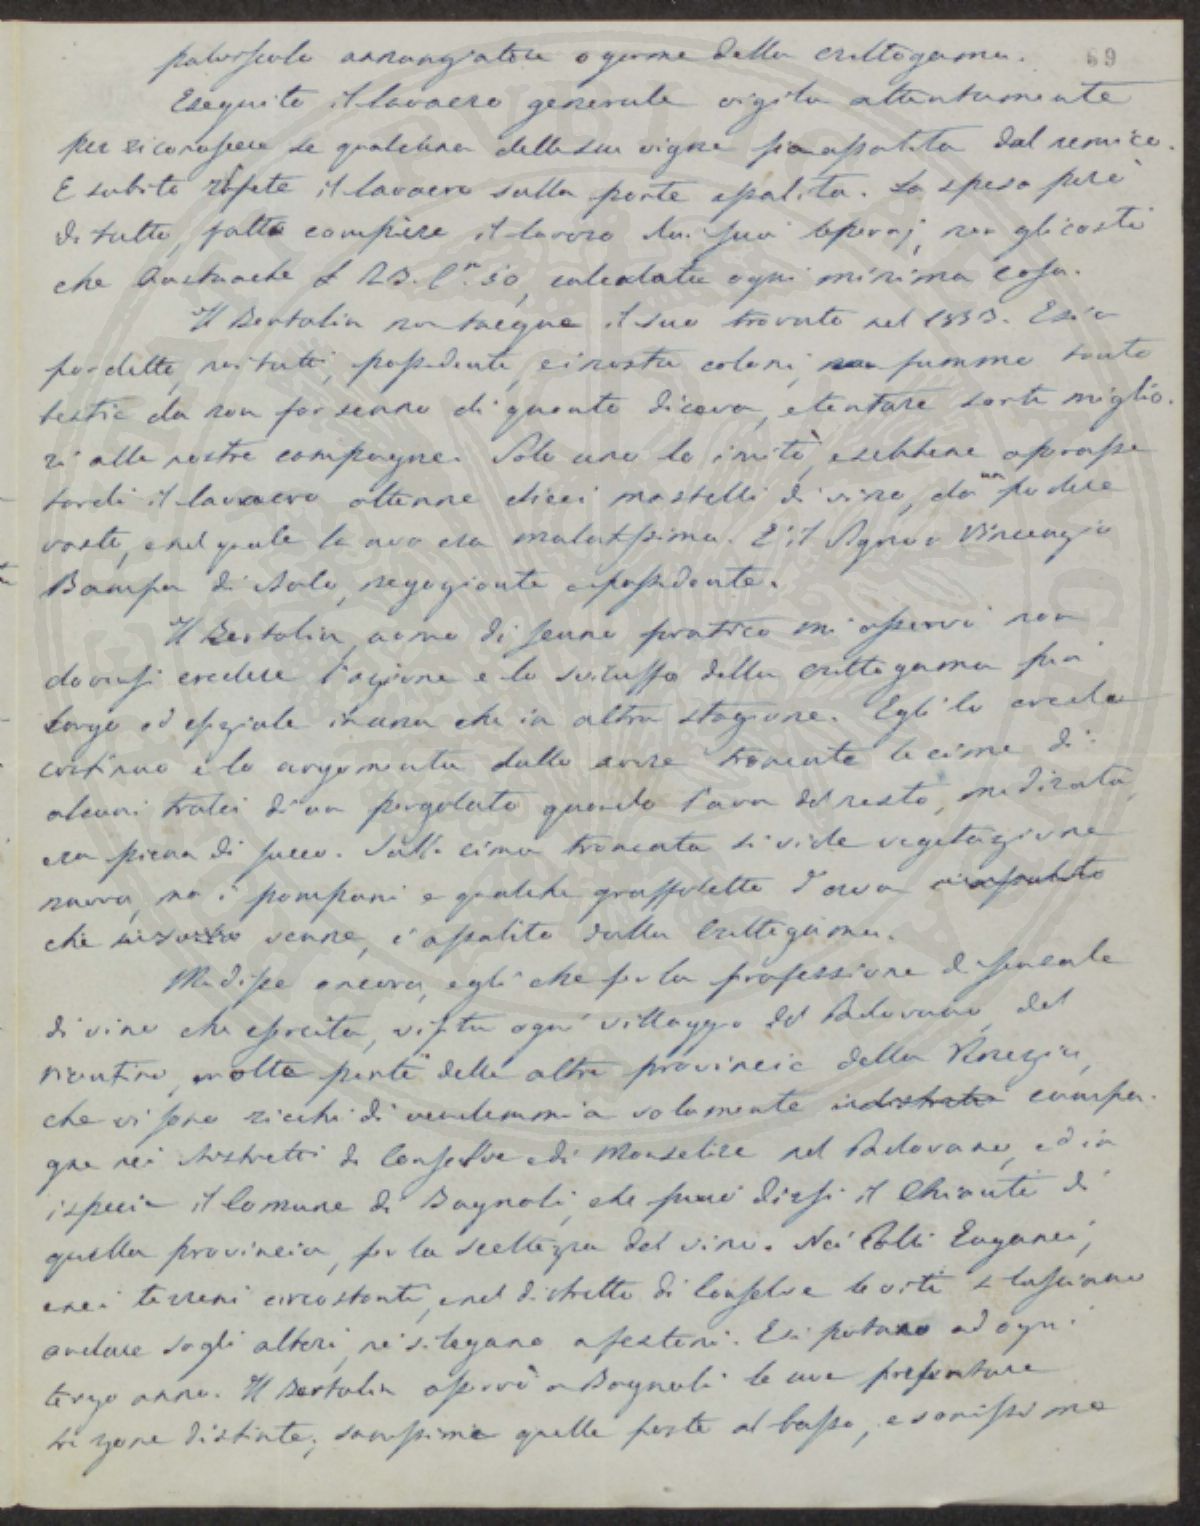 69
annunziatore o germe della crittogama.
Eseguito il lavacro generale vigila attentamente
per riconoscere se qualcuna delle sue vigne sia assalita dal nemico.
E subito ripete il lavacro sulla parte assalita. La spesa però
di tutto, fatto compiere il lavoro dai suoi operaj, non gli costò
che Austriache £ 23. C.mi 50, calcolata ogni minima cosa.
Il Bertolin non tacque il suo trovato nel 1853. Esso
disse, noi tutti, possidenti, e i nostri coloni, non fummo tanto
bestie da non far senno di quanto diceva, e tentare sorti miglio-
ri alle nostre campagne. Solo uno lo imitò, e sebbene oprasse
tardi il lavacro ottenne dieci mastelli di vino, da un podere
vasto, e nel quale la uva era malatissima. E il Signor Vincenzo
Bampa di Asolo, negoziante e possidente.
Il Bertolin, uomo di senno pratico mi osservò non
doversi credere l'azione e lo sviluppo della crittogama più
largo ed esiziale in una che in altra stagione. Egli lo crede
continuo e lo argomenta dallo avere troncate le cime di
alcuni tralci di un pergolato quando l'uva del resto, medicata,
era piena di succo. Sulla cima troncata si vide vegetazione
nuova, ma i pampani e qualche graspoletto d'uva
che venne, è assalito dalla Crittogama.
Mi disse ancora, egli che per la professione di sensale
di vino che esercita, visita ogni villaggio del Padovano, del
Vicentino, e molte parti delle altre provincie della Venezia,
che vi sono ricchi di vendemmia solamente campa-
gne nei distretti di Conselve e di Monselice nel Padovano, ed in
ispecie il Comune di Bagnoli, che può dirsi il Chianti di
quella provincia, per la sceltezza del vino. Nei Colli Euganei,
e nei terreni circostanti, e nel distretto di Conselve le viti si lasciano
andare sugli alberi, nè si legano a festoni. E si potano ad ogni
terzo anno. Il Bertolin osservò a Bagnoli le uve presentare
tre zone distinte; sanissime quelle poste al basso, e sanissime